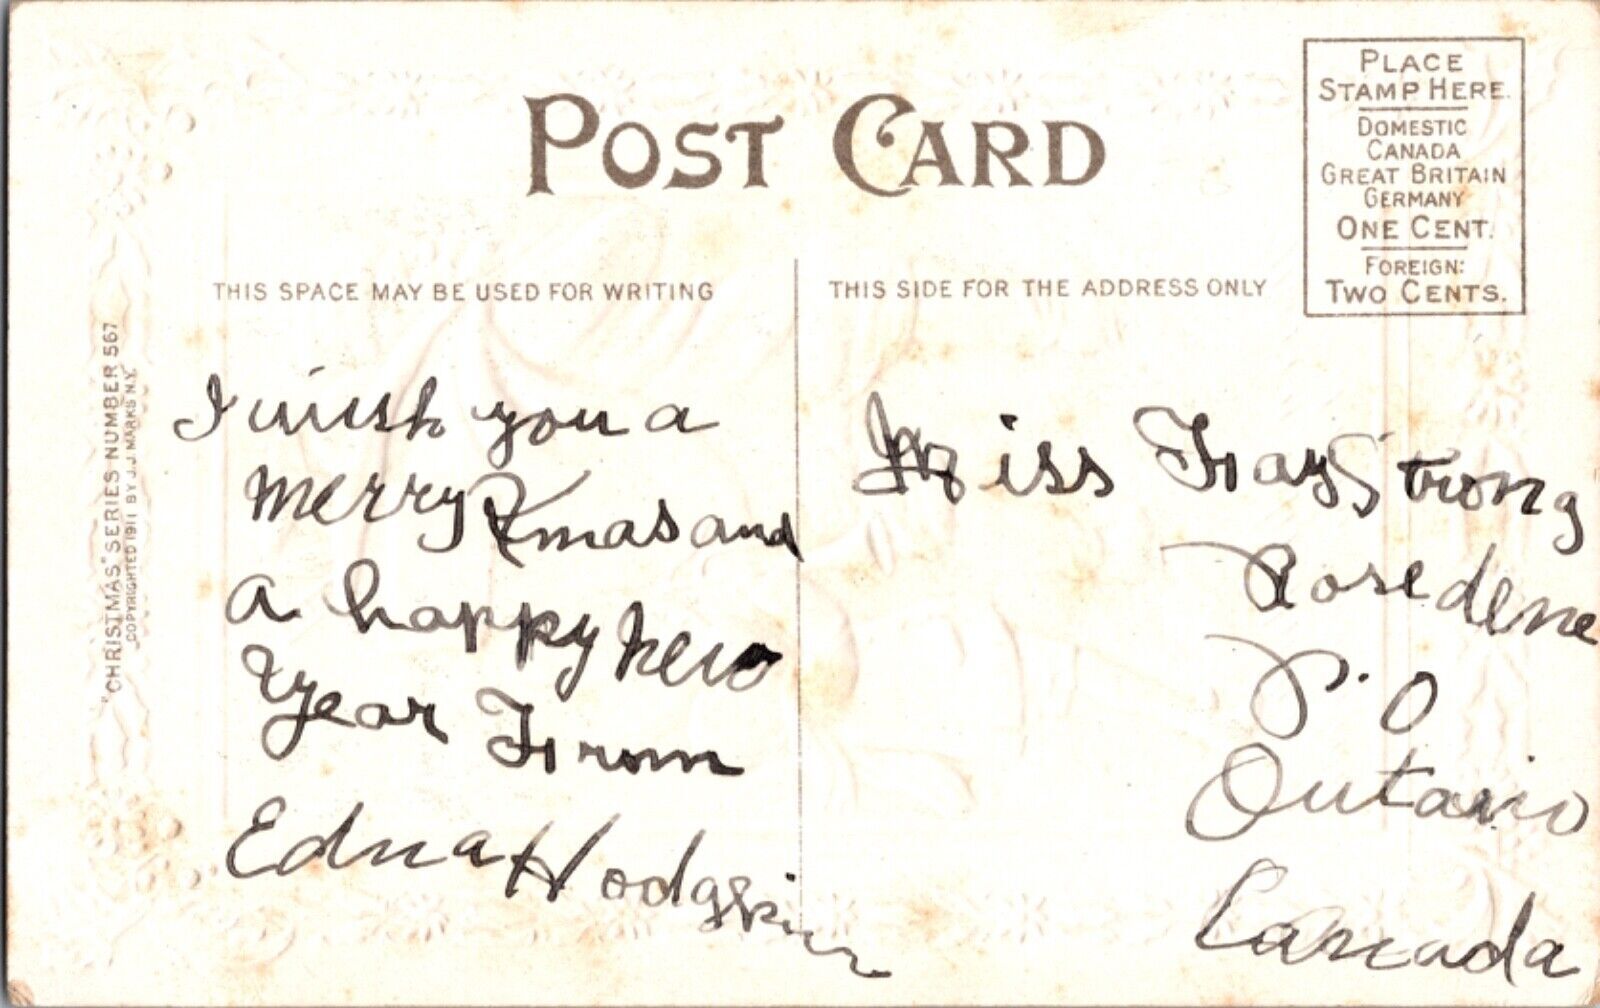 POST CARD
PLACE
STAMP HERE.
DOMESTIC
CANADA
GREAT BRITAIN
GERMANY
ONE CENT.
FOREIGN:
TWO CENTS.
THIS SPACE MAY BE USED FOR WRITING
THIS SIDE FOR THE ADDRESS ONLY
"CHRISTMAS" SERIES NUMBER 567
COPYRIGHTED 1911 BY J.J. MARKS N.Y.
I wish you a
merry Xmas and
a happy new
year From
Edna Hodgskin
Miss Fay Strong
Rosedene
P.O
Ontario
Canada